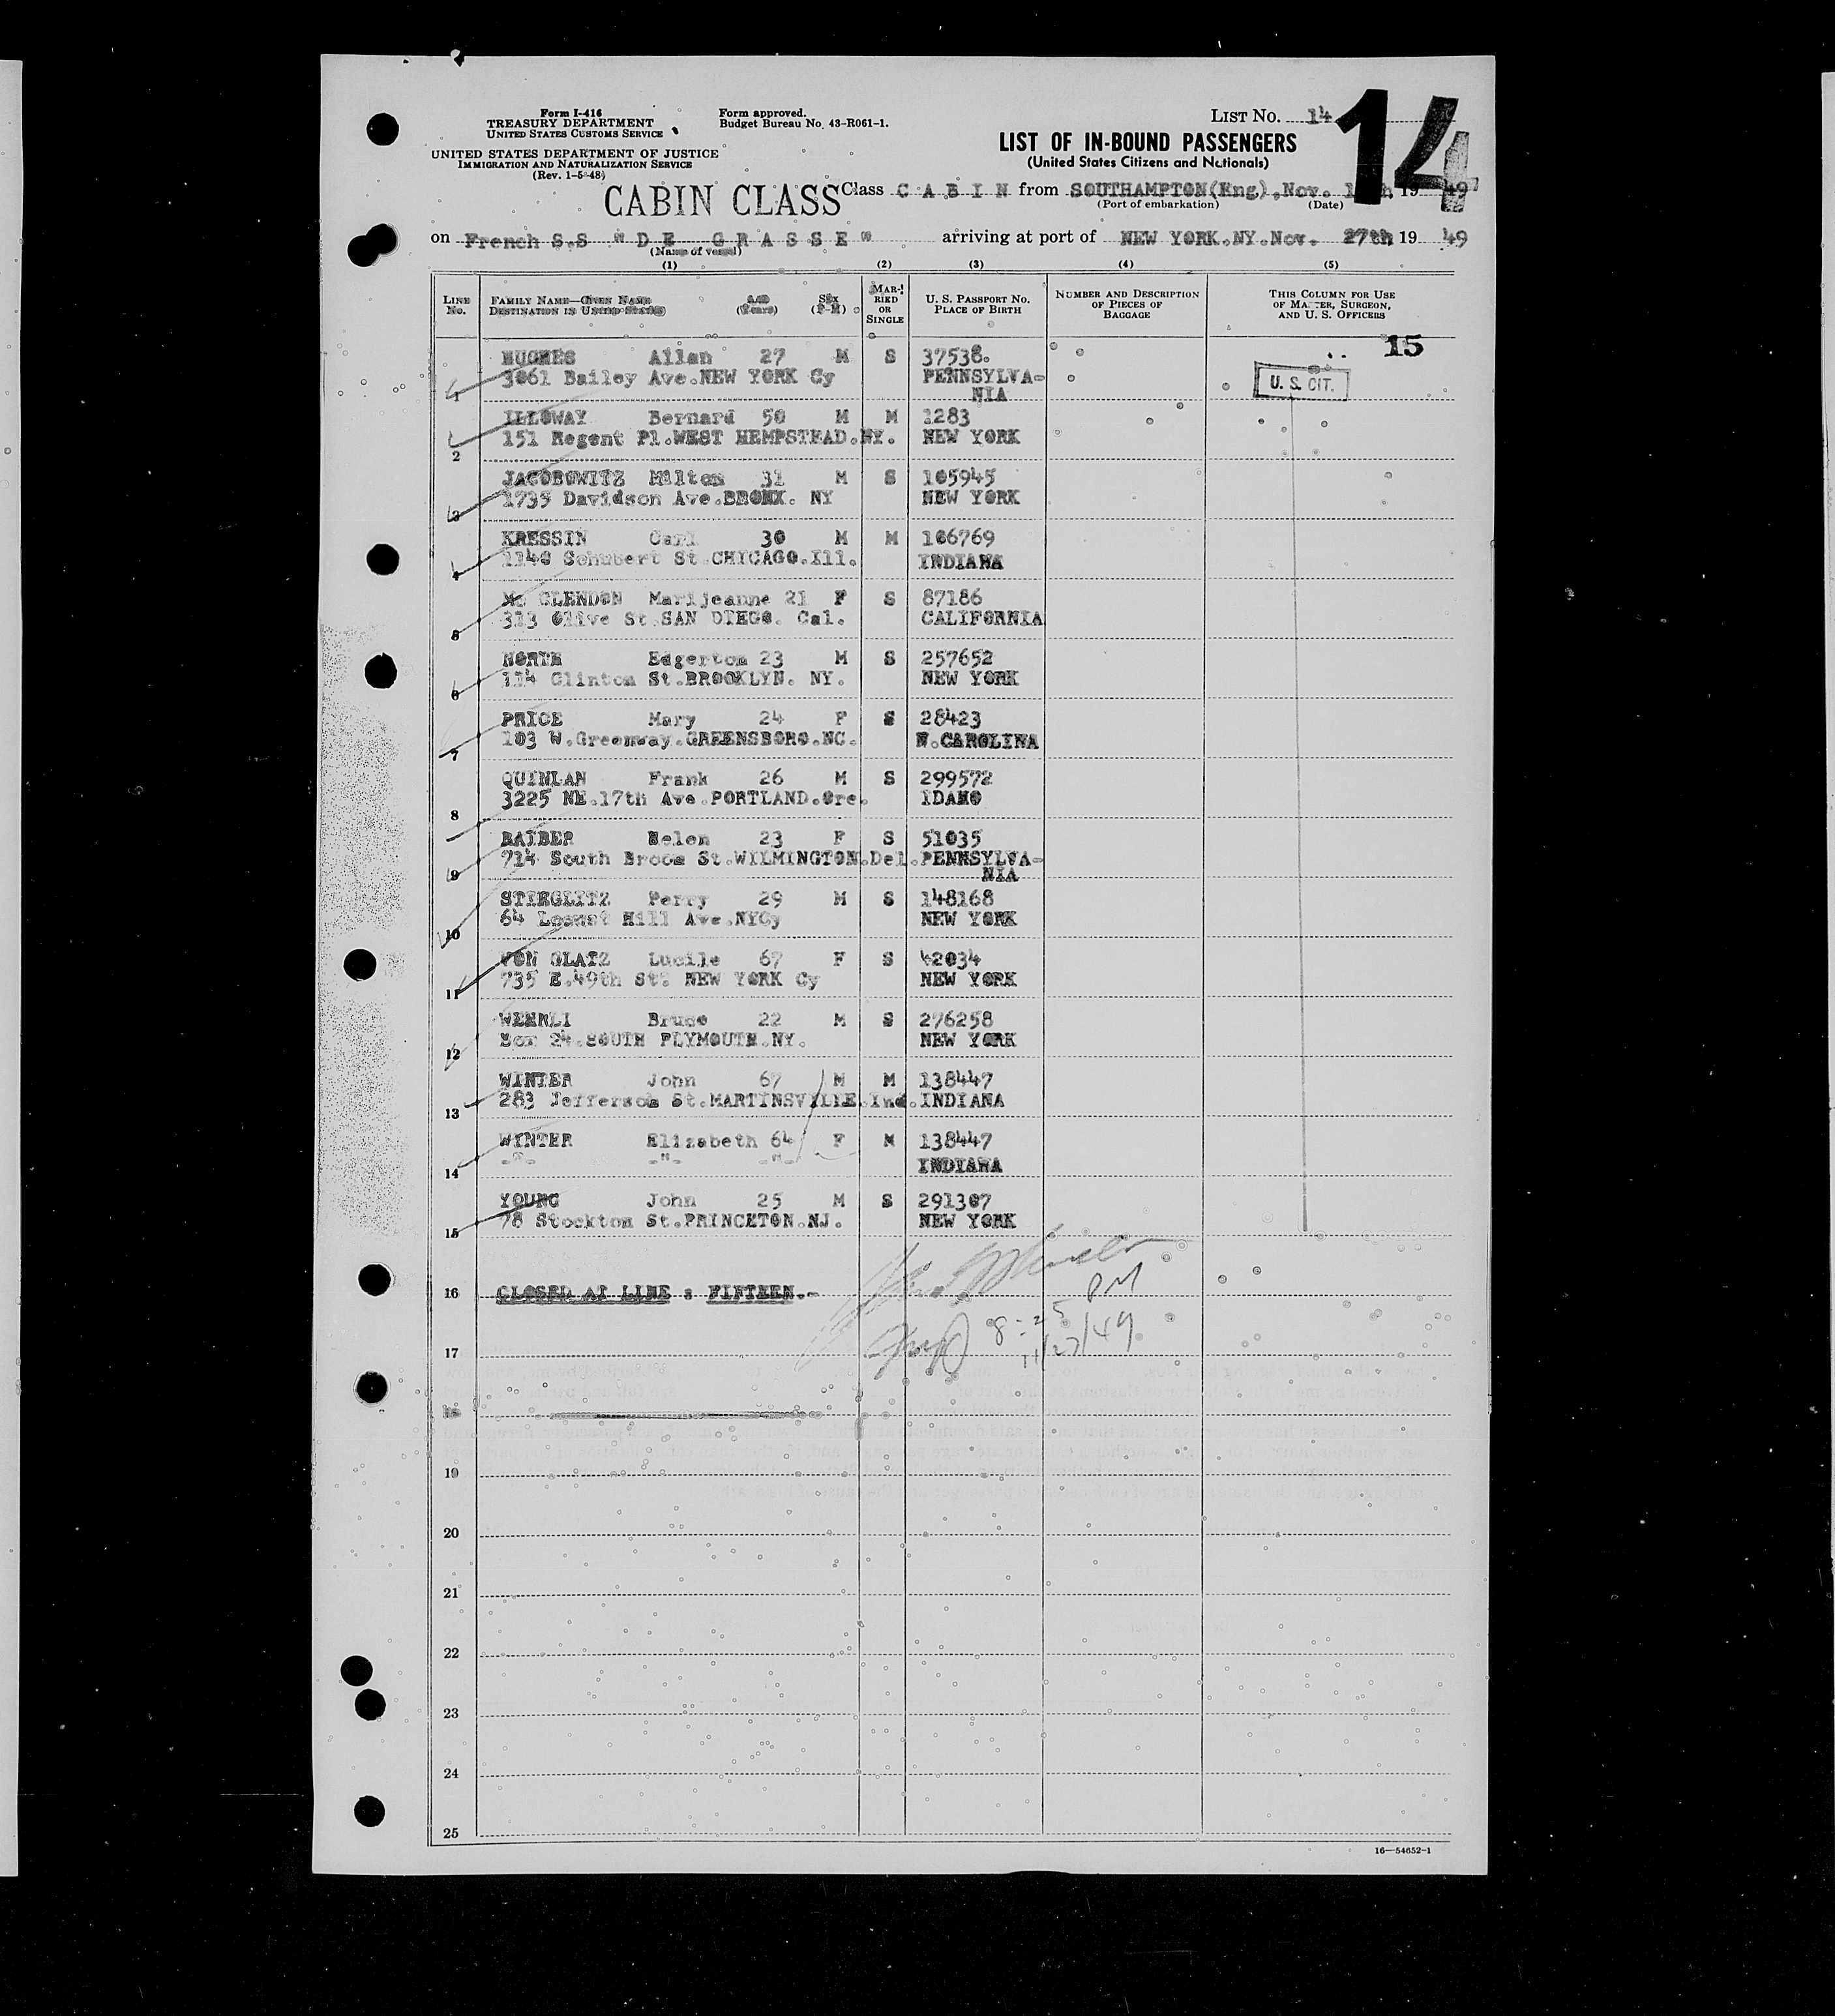 Form I-416
TREASURY DEPARTMENT
UNITED STATES CUSTOMS SERVICE
Form approved.
Budget Bureau No. 43-R061-1.
LIST No. 14
14
UNITED STATES DEPARTMENT OF JUSTICE
IMMIGRATION AND NATURALIZATION SERVICE
(Rev. 1-5-48)
LIST OF IN-BOUND PASSENGERS
(United States Citizens and Nationals)
CABIN CLASS Class C A B I N from SOUTHAMPTON(Eng),Nov. 19 49
(Port of embarkation) (Date)
on French S.S "D E G R A S S E" arriving at port of NEW YORK.NY.Nov. 27th 19 49
(Name of vessel)
(1) (2) (3) (4) (5)
LINE No. FAMILY NAME—GIVEN NAME DESTINATION IN UNITED STATES AGE (Years) SEX (F-M) MARRIED OR SINGLE U. S. PASSPORT NO. PLACE OF BIRTH NUMBER AND DESCRIPTION OF PIECES OF BAGGAGE THIS COLUMN FOR USE OF MASTER, SURGEON, AND U. S. OFFICERS
15
HUGHES Allan 27 M S 37538.
3061 Bailey Ave.NEW YORK Cy PENNSYLVA-
1 NIA
U. S. CIT.
ILLOWAY Bernard 50 M M 1283
151 Regent Pl.WEST HEMPSTEAD.NY. NEW YORK
2
JACOBOWITZ Milton 31 M S 105945
1735 Davidson Ave.BRONX. NY NEW YORK
3
KRESSIN Carl 30 M M 106769
1140 Schubert St.CHICAGO.Ill. INDIANA
4
Mc CLENDON Marijeanne 21 F S 87186
313 Olive St.SAN DIEGO. Cal. CALIFORNIA
5
NORTH Edgerton 23 M S 257652
114 Clinton St.BROOKLYN. NY. NEW YORK
6
PRICE Mary 24 F S 28423
103 W.Greenway.GREENSBORO.NC. N.CAROLINA
7
QUINLAN Frank 26 M S 299572
3225 NE.17th Ave.PORTLAND.Ore. IDAHO
8
RAIBER Helen 23 F S 51035
714 South Broom St.WILMINGTON.Del. PENNSYLVA-
9 NIA
STIEGLITZ Perry 29 M S 148168
64 Locust Hill Ave.NYCy NEW YORK
10
VON GLATZ Lucile 67 F S 42034
735 E.49th St. NEW YORK Cy NEW YORK
11
WEHRLI Bruce 22 M S 276258
Box 24.SOUTH PLYMOUTH.NY. NEW YORK
12
WINTER John 67 M M 138447
283 Jefferson St.MARTINSVILLE.Ind. INDIANA
13
WINTER Elizabeth 64 F M 138447
-"- -"- -"- INDIANA
14
YOUNG John 25 M S 291307
78 Stockton St.PRINCETON.NJ. NEW YORK
15
16 CLOSED AT LINE : FIFTEEN.-
PM
8:25
11/27/49
17
18
19
20
21
22
23
24
25
16—54652-1